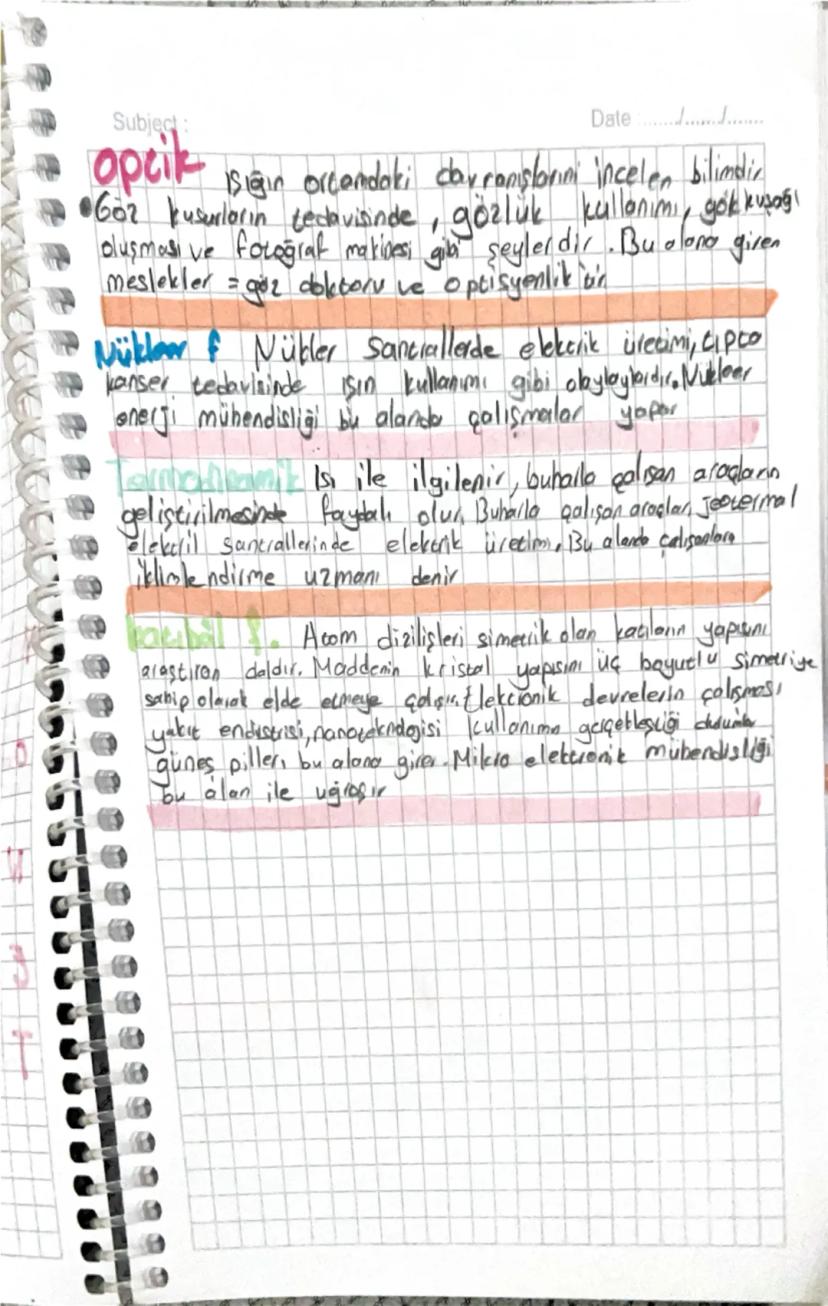 Subject :
Date : ....../....../.......
optik ışığın ortamdaki davranışlarını incelen bilimdir
• Göz kusurların tedavisinde, gözlük kullanımı, gökkuşağı
oluşması ve fotoğraf makinesi gibi şeylerdir. Bu alana giren
meslekler = göz doktoru ve optisyenlik'tir
Nükleer f Nükler santrallerde elektrik üretimi, tıpta
kanser tedavisinde ışın kullanımı gibi Nükleer
enerji mühendisliği bu alanda çalışmalar yapar
Termodinamik Isı ile ilgilenir, buharla çalışan araçların
geliştirilmesinde faydalı olur. Buharla çalışan araçlar, jeotermal
elektril santrallerinde elektrik üretimi, Bu alanda çalışanlara
iklimlendirme uzmanı denir
katıhâl f. Atom dizilişleri simetrik olan katıların yapısını
araştıran daldır. Maddenin kristal yapısını üç boyutlu simetriye
sahip olarak elde etmeye çalışır. Elektronik devrelerin çalışması
yakıt endüstrisi, nanoteknolojisi kullanıma
güneş pilleri bu alana girer. Mikro elektronik mühendisliği
bu alan ile uğraşır
O
W
S
T